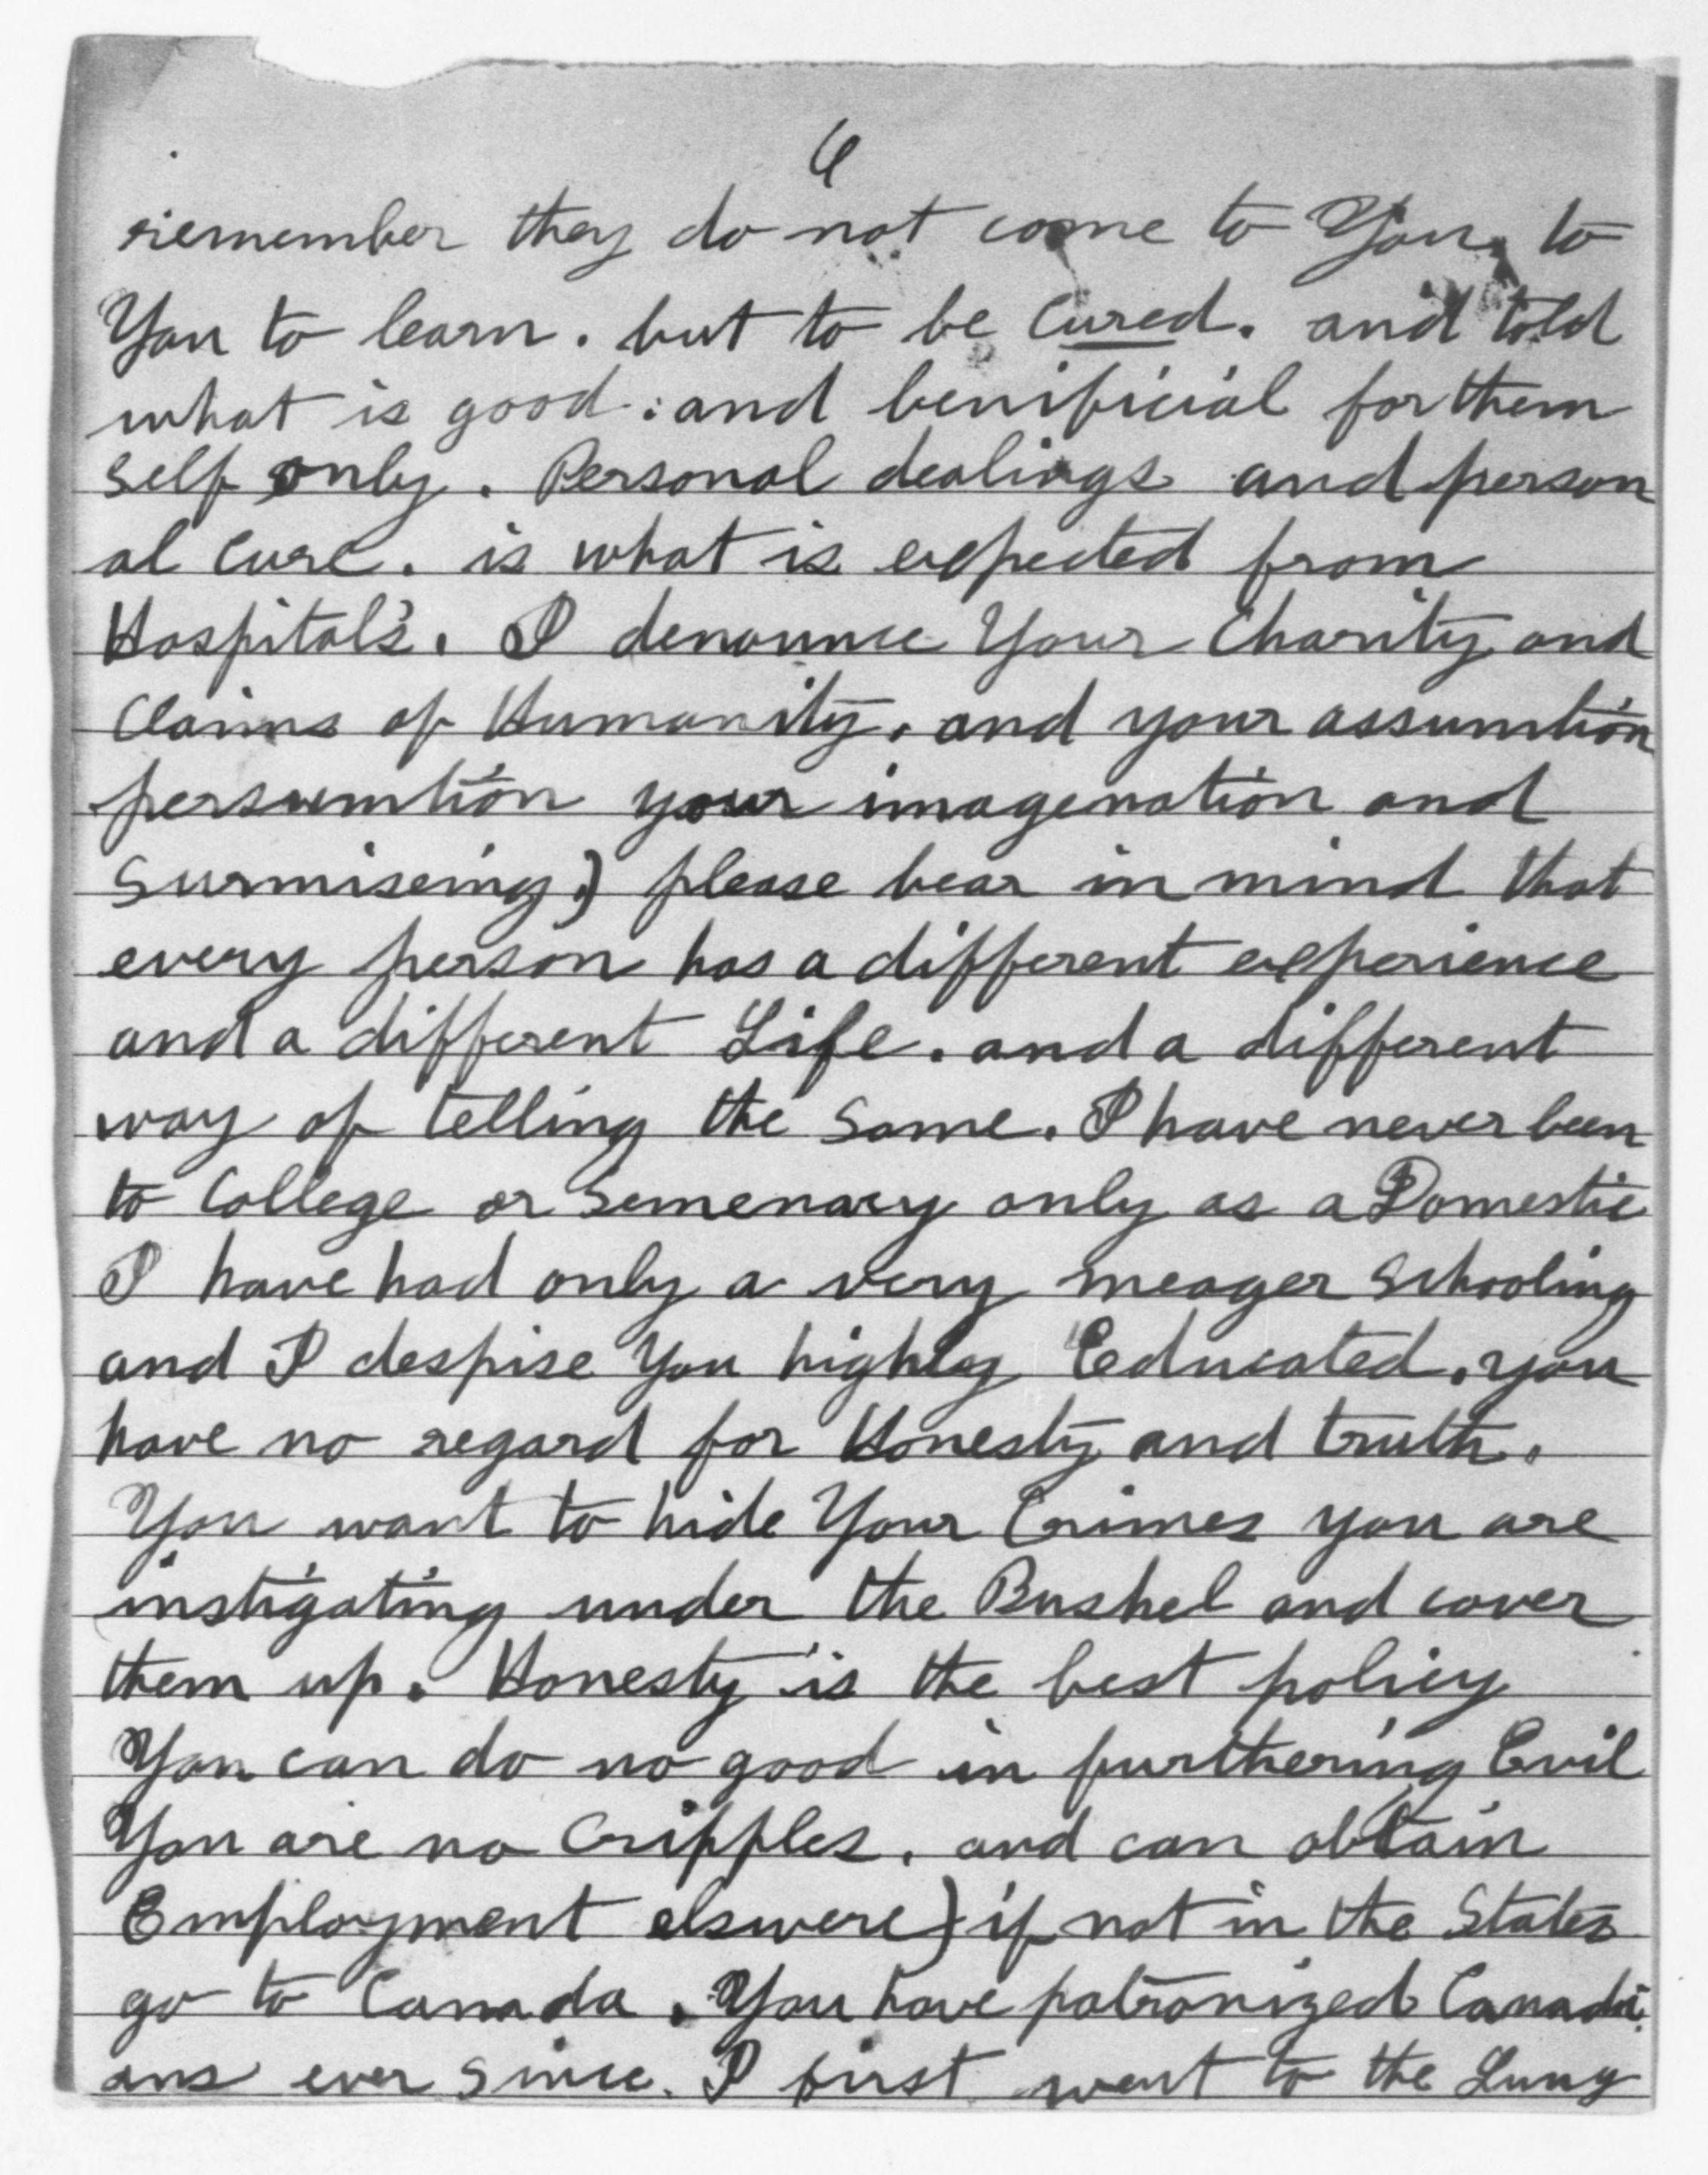 6
riemember they do not come to You, to
You to learn. but to be Cured. and told
what is good: and benificial for them
self only. Personal dealings and person
al Cure. is what is expected from
Hospital's. I denounce Your Charity and
Claims of Humanity. and your assumtion
persumtion your imagenation and
Surmiseing) please bear in mind that
every person has a different experience
and a different Life. and a different
way of telling the Same. I have never been
to College or Semenary only as a Domestic
I have had only a very meager Schooling
and I despise You highly Educated. you
have no regard for Honesty and truth.
You want to hide Your Crimes you are
instigating under the Bushel and cover
them up. Honesty is the best policy
You can do no good in furthering Evil
You are no Cripples. and can obtain
Employment elswere) if not in the States
go to Canada. You have patronized Canadi
ans ever Since. I first went to the Lung